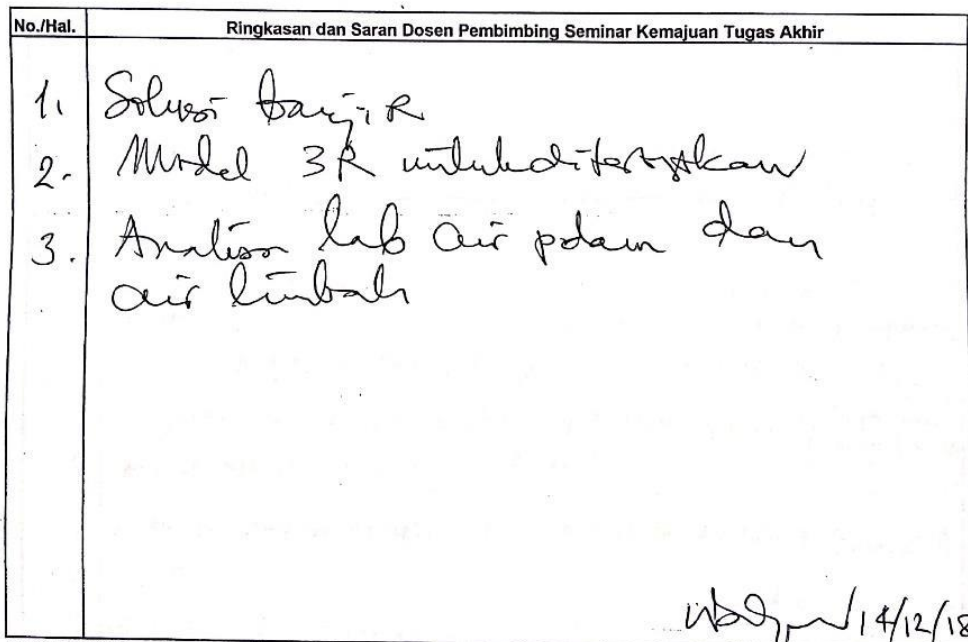 No./Hal. Ringkasan dan Saran Dosen Pembimbing Seminar Kemajuan Tugas Akhir
1. Solusi banjir
2. Model 3R untuk diterapkan
3. Analisa lab air pdam dan
air limbah
14/12/18